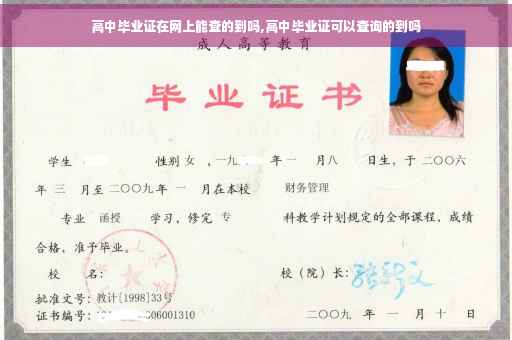 高中毕业证在网上能查的到吗,高中毕业证可以查询的到吗
成人高等教育
毕业证书
学生 性别 女 ,一九 年 一 月八 日生，于 二〇〇六
年 三 月至 二〇〇九 年 一 月在本校 财务管理
专业 函授 学习，修完 专 科教学计划规定的全部课程，成绩
合格，准予毕业。
校 名： 校（院）长：
批准文号：教计[1998]33号
证书编号： 06001310 二〇〇九 年 一 月 十 日